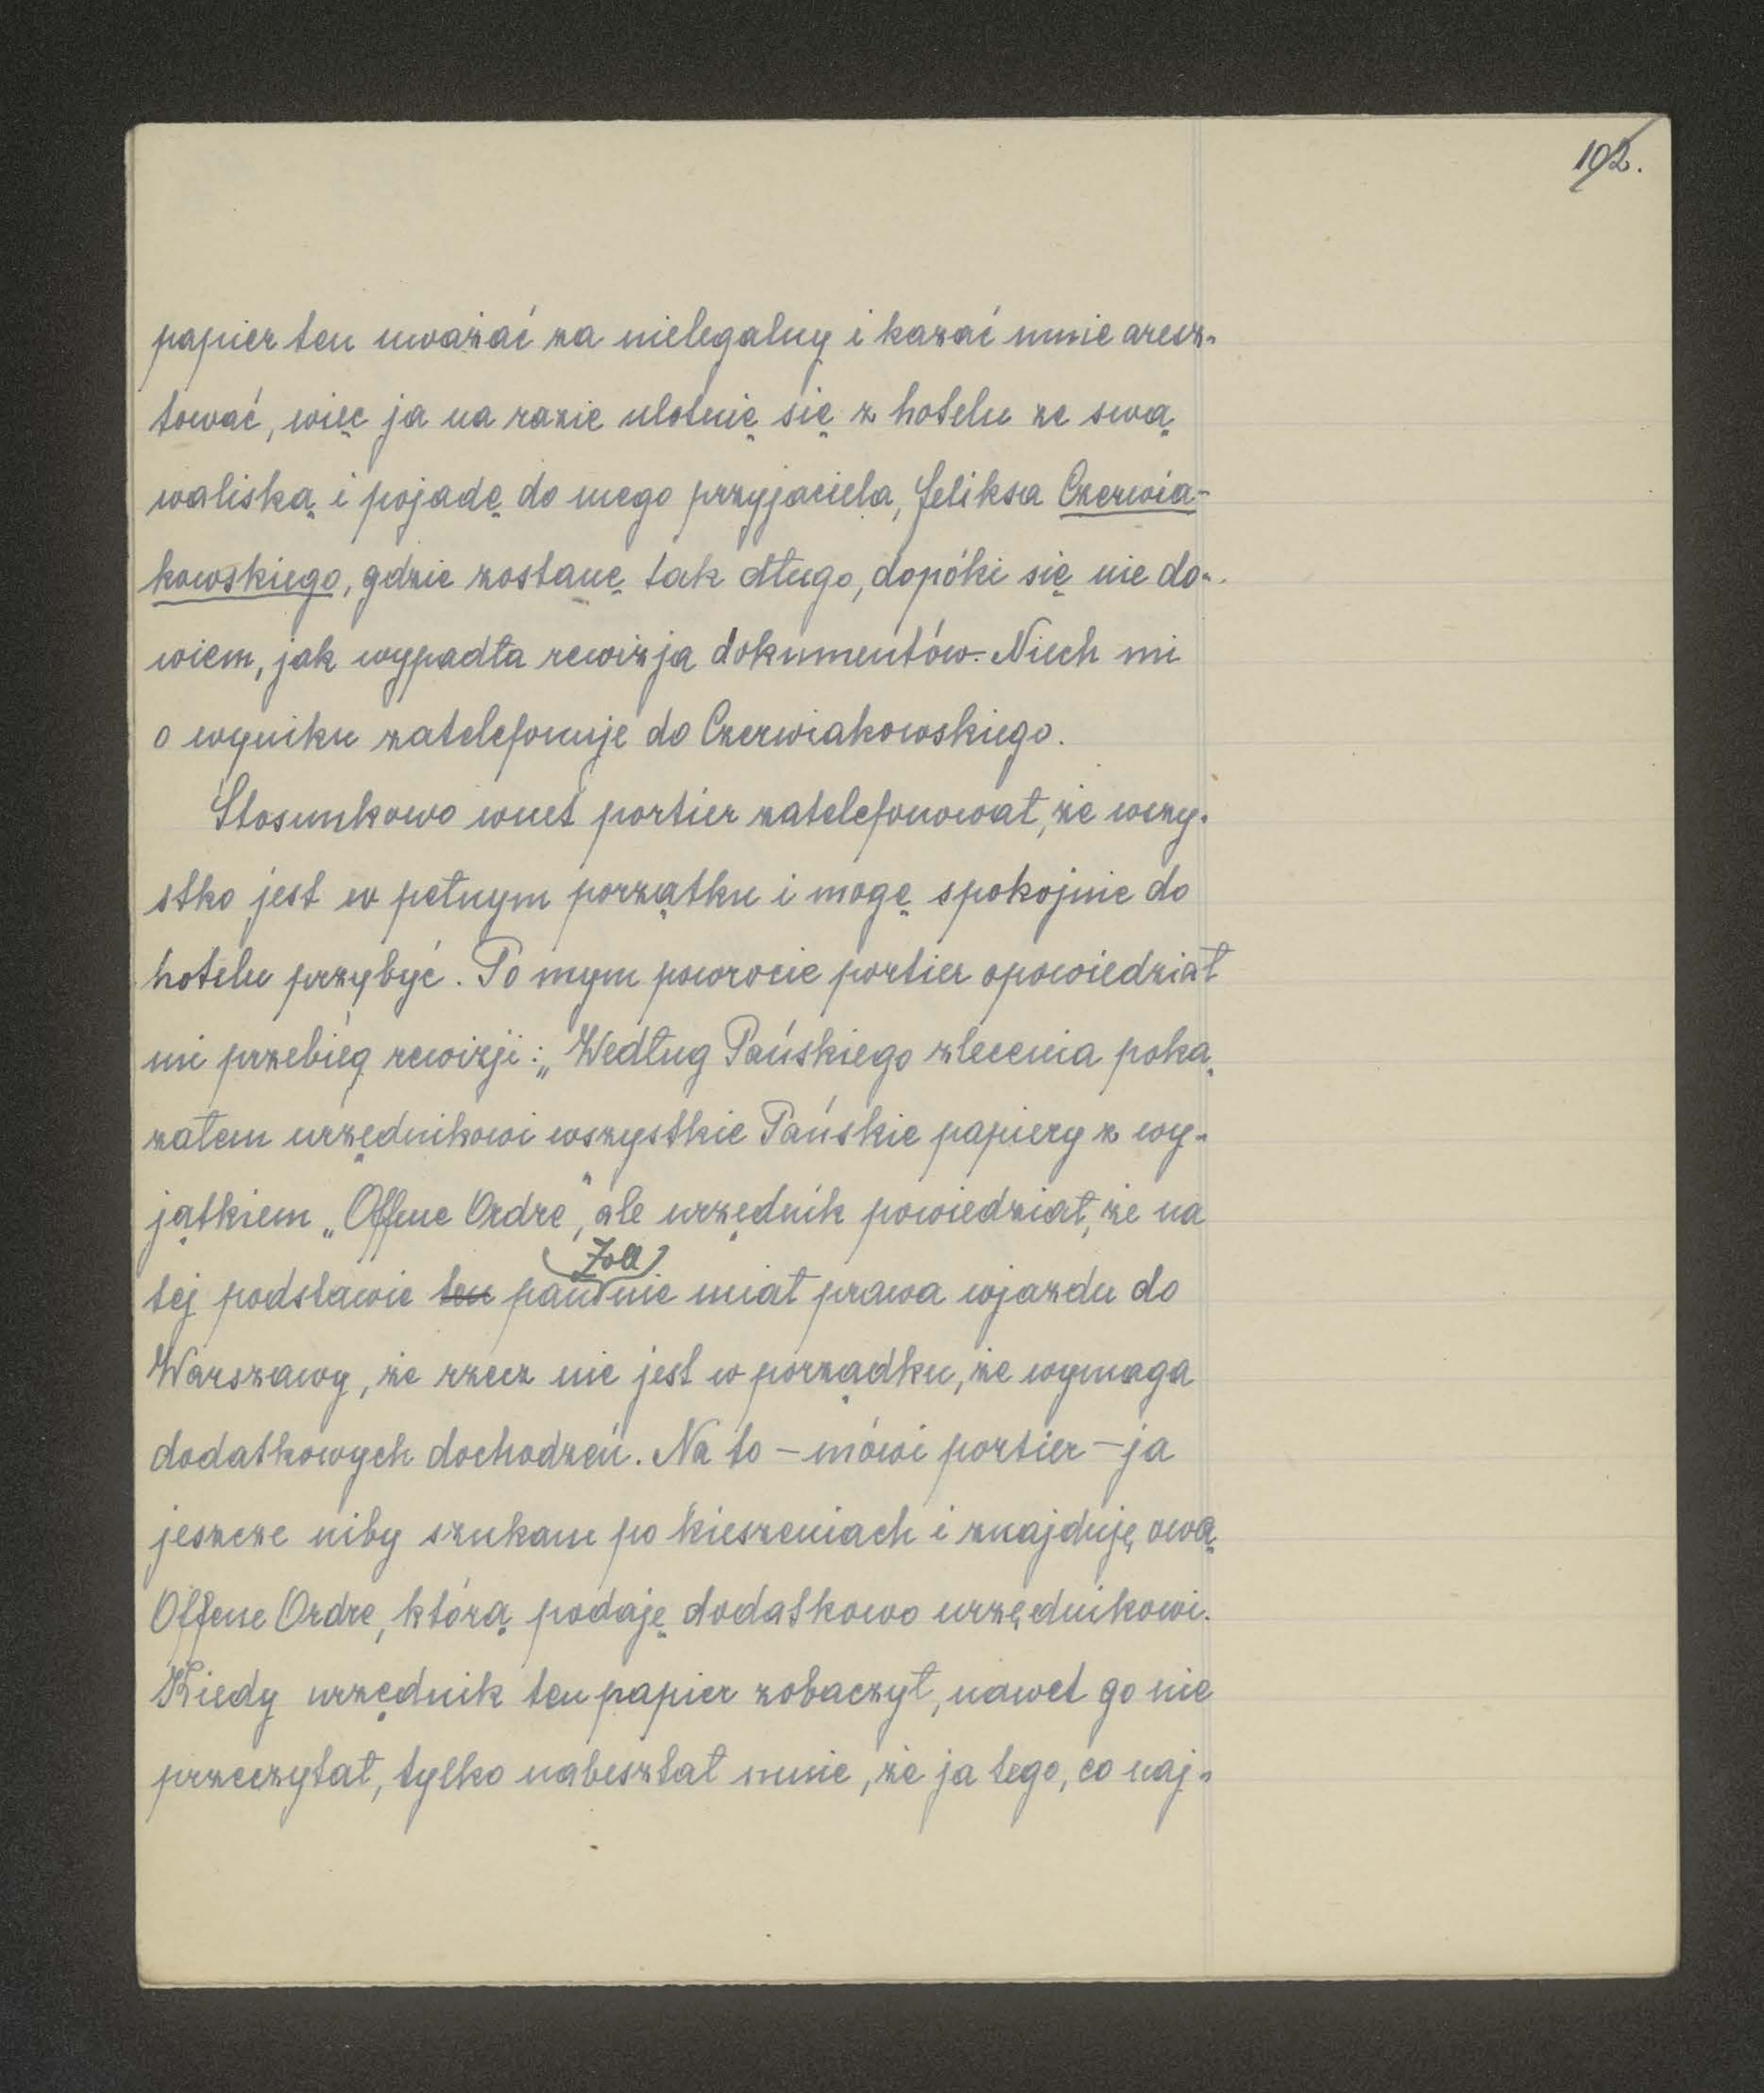 192.
papier ten uważać za nielegalny i kazać mnie aresz-
tować, więc ja na razie ulotnię się z hotelu ze swą
waliską i pojadę do mego przyjaciela, Feliksa Czerwia-
kowskiego, gdzie zostanę tak długo, dopóki się nie do-
wiem, jak wypadła rewizja dokumentów. Niech mi
o wyniku zatelefonuje do Czerwiakowskiego.
Stosunkowo wnet portier zatelefonował, że wszy-
stko jest w pełnym porzątku i mogę spokojnie do
hotelu przybyć. Po mym powrocie portier opowiedział
mi przebieg rewizji: „Według Pańskiego zlecenia poka-
załem urzędnikowi wszystkie Pańskie papiery z wy-
jątkiem „Offene Ordre", ale urzędnik powiedział, że na
Zoll
tej podstawie ten pan nie miał prawa wjazdu do
Warszawy, że rzecz nie jest w porządku, że wymaga
dodatkowych dochodzeń. Na to – mówi portier – ja
jeszcze niby szukam po kieszeniach i znajduję ową
Offene Ordre, którą podaję dodatkowo urzędnikowi.
Kiedy urzędnik ten papier zobaczył, nawet go nie
przeczytał, tylko nabeształ mnie, że ja tego, co naj-